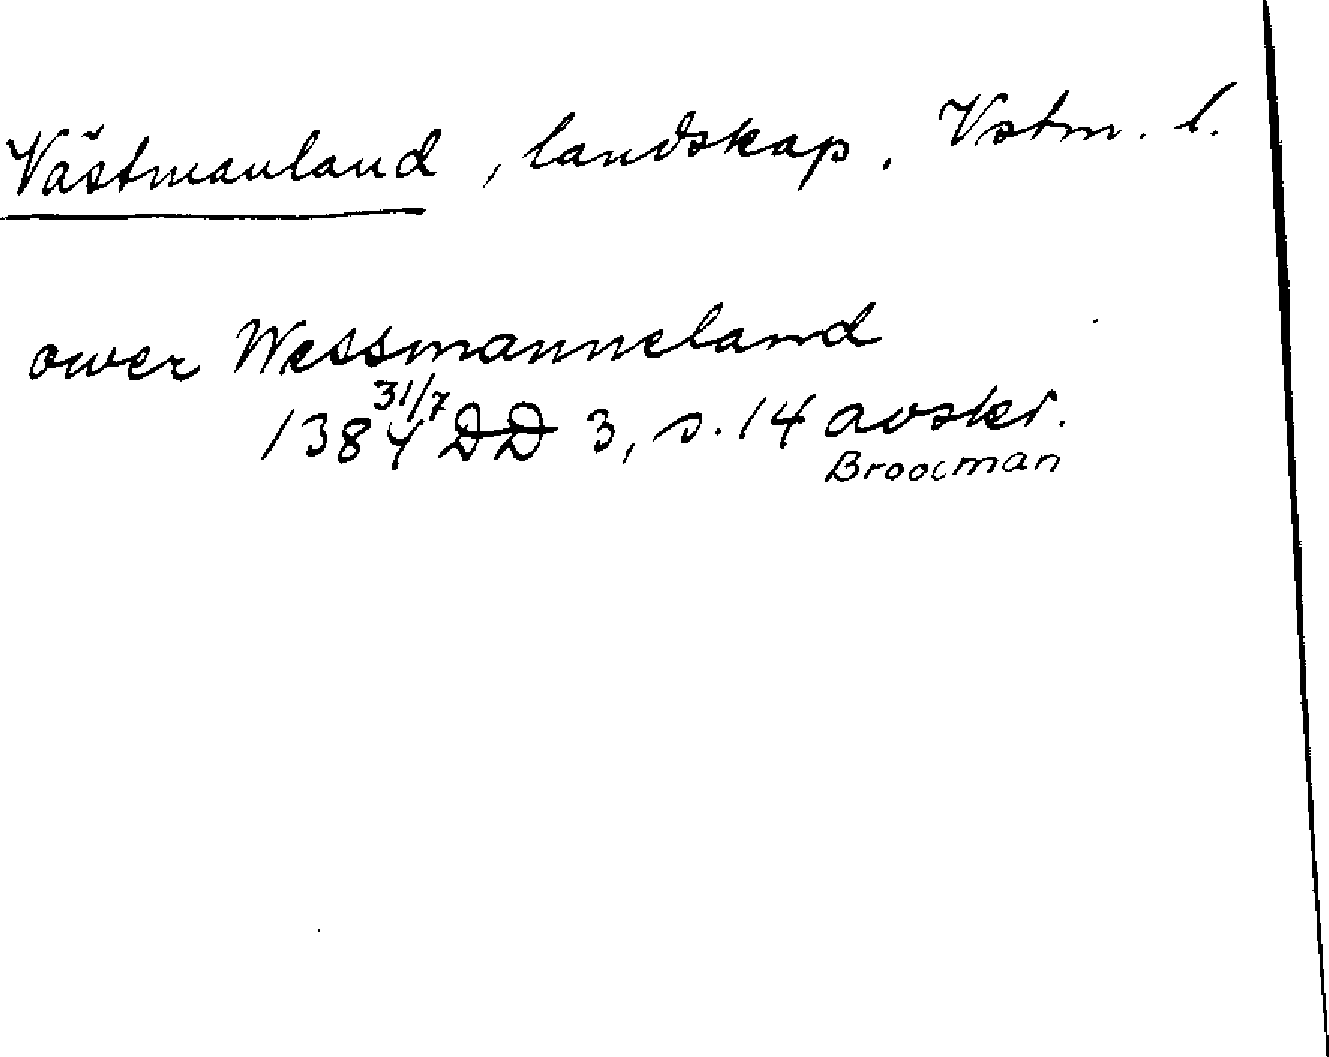 Västmanland, landskap. Vstm. l.
ower Wessmanneland
1384 31/7 DD 3, s. 14 avskr.
Broocman